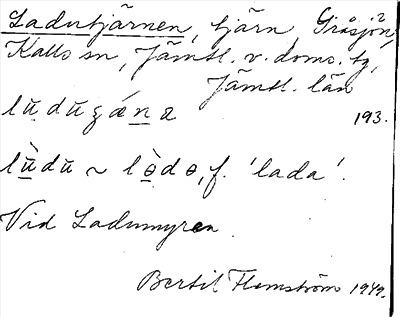 Ladutjärnen, tjärn, Gråsjön,
Kalls sn, Jämtl. v. doms. tg,
Jämtl. län
193.
lŭdŭʒǽna
lù̱dŭ ~ lò̱dɵ, f. 'lada'.
Vid Ladumyren.
Bertil Flemström 1949.